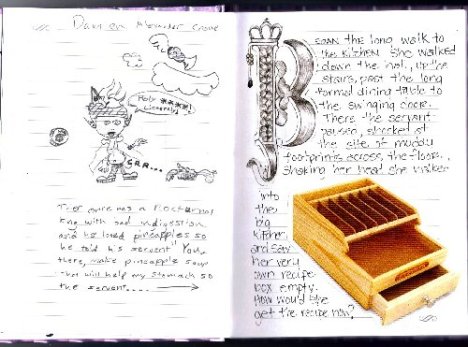 Alexander
Holy ****!
(literally)
GRR...
once was a nocturnal
king with bad indigestion
and he loved pineapples so
he told his servant "You,
there, make pineapple soup
that will help my stomach so
the servant....
BEGAN the long walk to
the kitchen. She walked
down the hall, up the
stairs, past the long
formal dining table to
the swinging door.
There the servant
paused, shocked at
the site of muddy
footprints across the floor.
Shaking her head she walked
into
the
big
kitchen,
and saw
her very
own recipe
box empty.
How would she
get the recipe now?